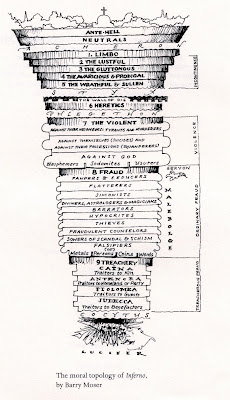 ANTE-HELL
NEUTRALS
ACHERON
1. LIMBO
2 THE LUSTFUL
3 THE GLUTTONOUS
4 THE AVARICIOUS & PRODIGAL
5 THE WRATHFUL & SULLEN
INCONTINENCE
STYX
THE WALL OF DIS
6 HERETICS
PHLEGETHON
7 THE VIOLENT
AGAINST THEIR NEIGHBORS: TYRANTS AND MURDERERS
AGAINST THEMSELVES (SUICIDES) AND
AGAINST THEIR POSSESSIONS (SQUANDERERS)
AGAINST GOD
Blasphemers Sodomites Usurers
VIOLENCE
GERYON
8 FRAUD
PANDERS & SEDUCERS
FLATTERERS
SIMONISTS
DIVINERS, ASTROLOGERS & MAGICIANS
BARRATORS
HYPOCRITES
THIEVES
FRAUDULENT COUNSELORS
SOWERS OF SCANDAL & SCHISM
FALSIFIERS
Metals Persons Coins Words
MALEBOLGE
ORDINARY FRAUD
9 TREACHERY
CAÏNA
Traitors to Kin
ANTENORA
Traitors to Homeland or Party
PTOLOMEA
Traitors to Guests
JUDECCA
Traitors to Benefactors
TREACHEROUS FRAUD
COCYTUS
LUCIFER
The moral topology of Inferno,
by Barry Moser